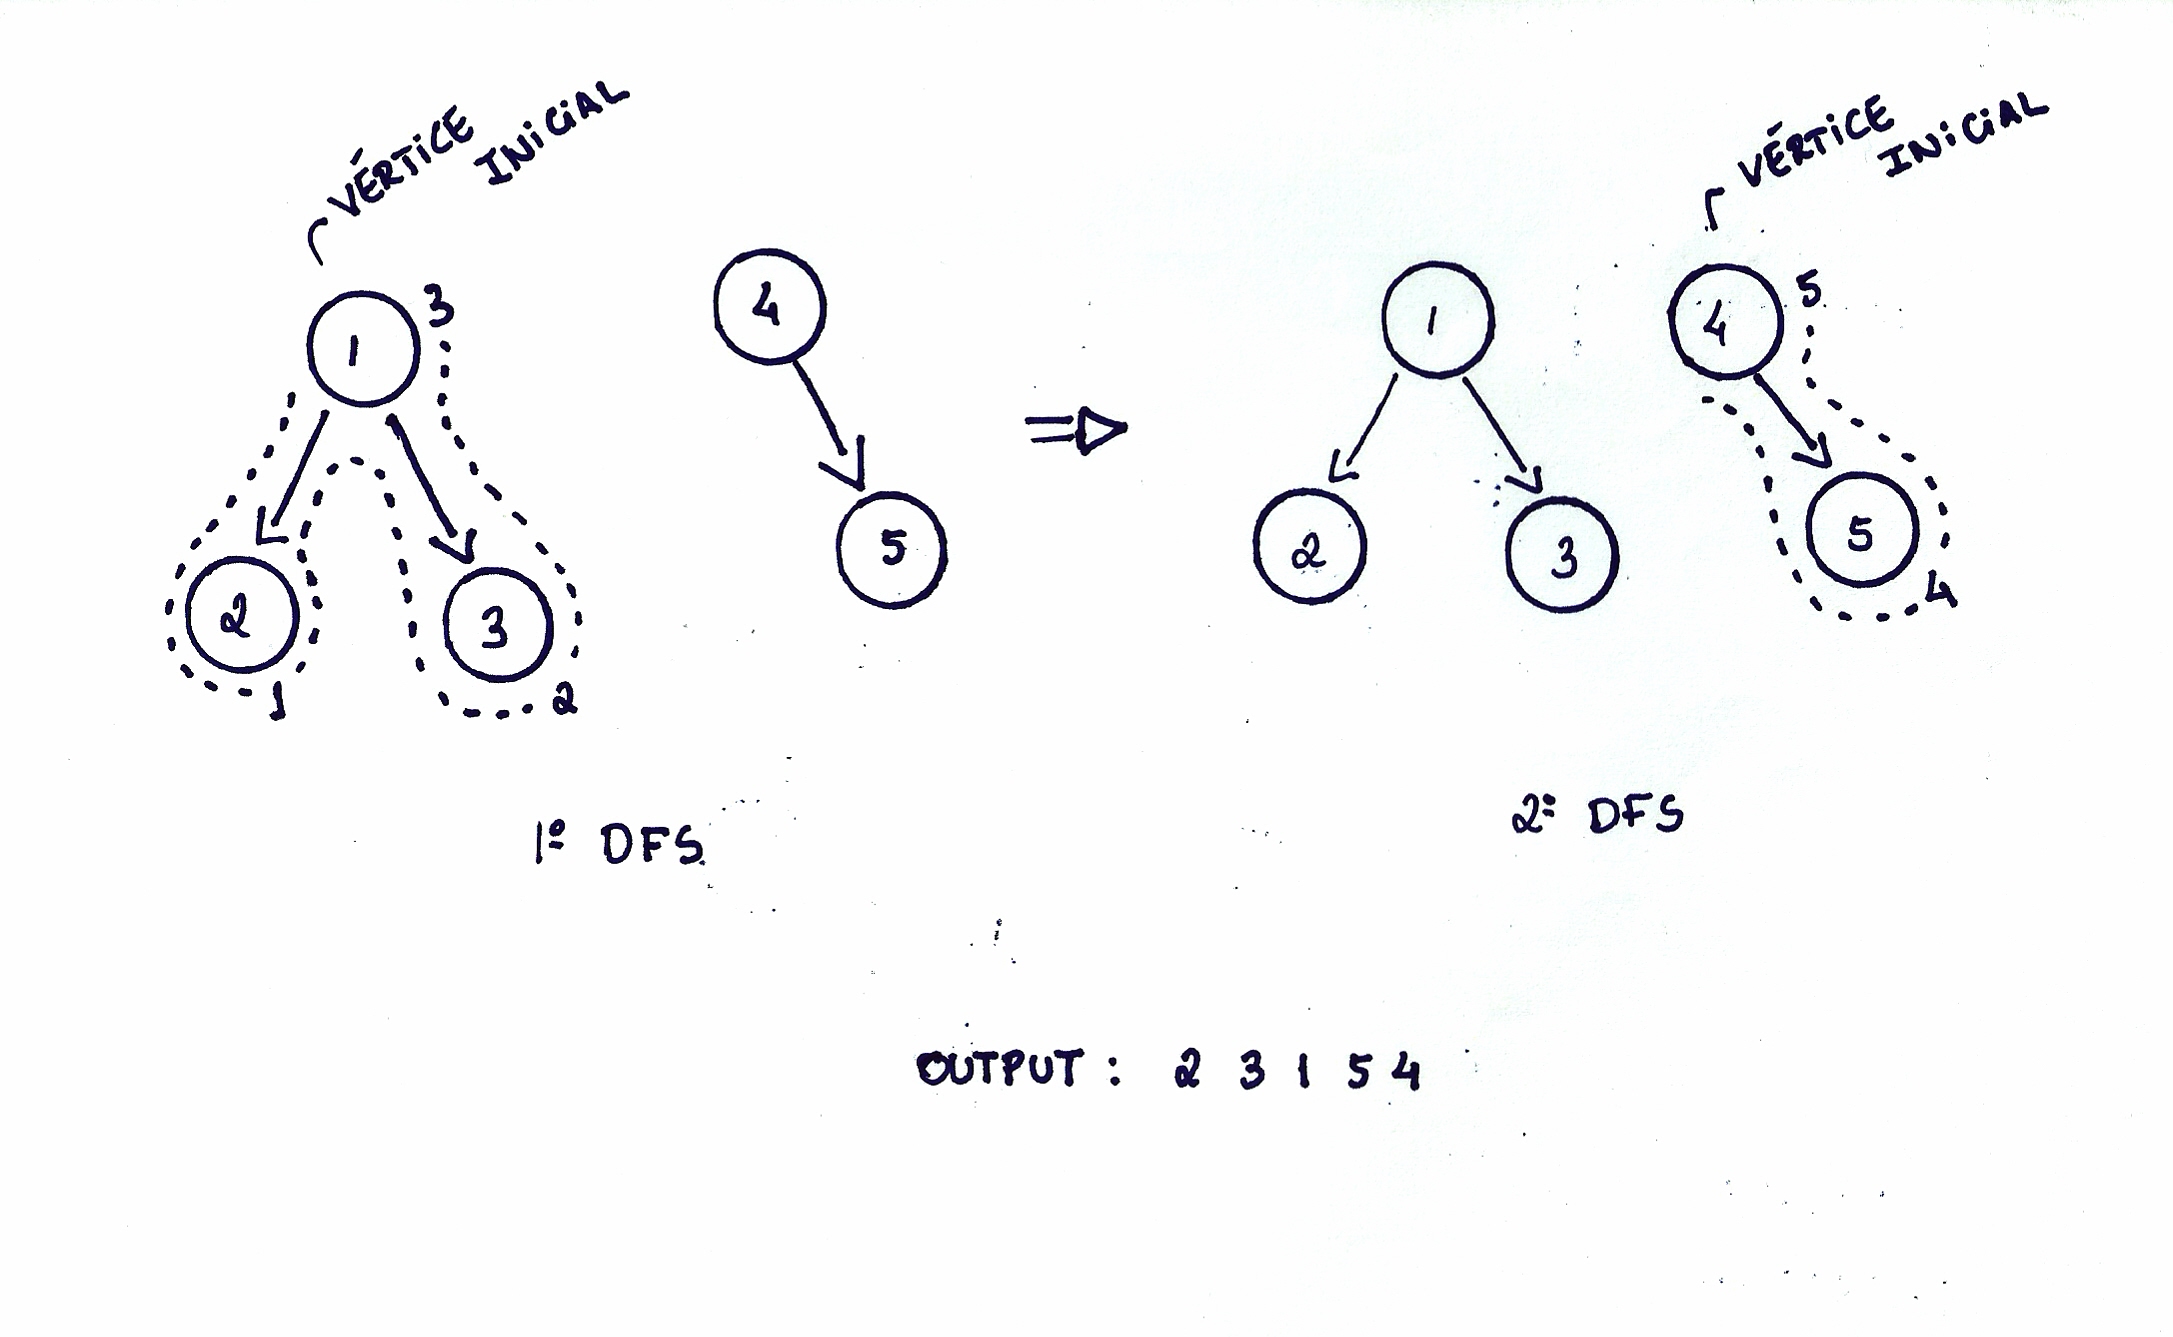 VÉRTICE
INICIAL
1 3
4
2
1
3
2
5
1º DFS
VÉRTICE
INICIAL
1
4 5
2
3
5
4
2º DFS
OUTPUT: 2 3 1 5 4